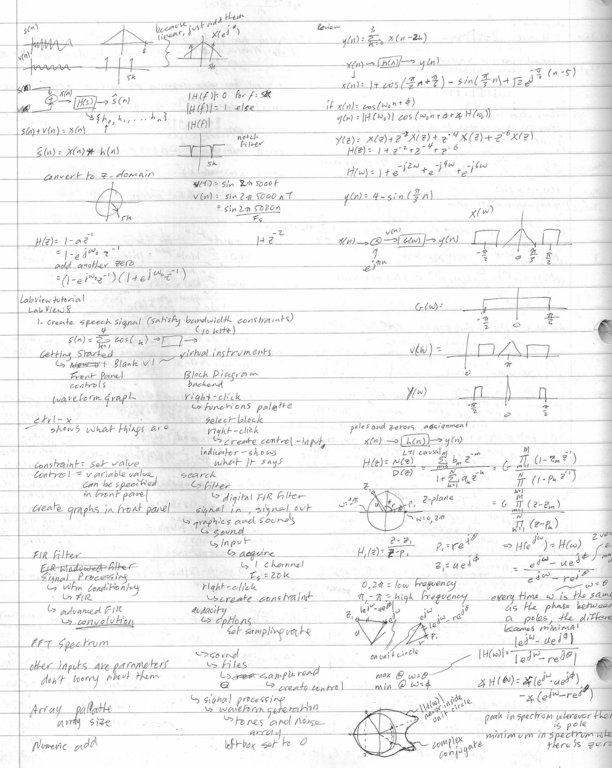 s(n)
v(n)
because linear, just add them
X(e^jω)
5k
5k
x(n) → H(z) → ŝ(n)
{h0, h1, ... hn}
s(n) + v(n) = x(n)
ŝ(n) = x(n) * h(n)
|H(f)| = 0 for f = 5k
|H(f)| = 1 else
|H(f)|
notch filter
5k
convert to z-domain
5k
v(t) = sin 2π 5000t
v(n) = sin 2π 5000 nT
= sin 2π 5000n / Fs
H(z) = 1 - az^-1
= 1 - e^jω0 z^-1
add another zero
= (1 - e^jω0 z^-1)(1 + e^jω0 z^-1)
1 + z^-2
Labview tutorial
LabView 8
1. create speech signal (satisfy bandwidth constraints)
(10 kHz)
Getting Started
Blank VI
virtual instruments
Front Panel
controls
Block Diagram
backend
waveform graph
right-click
↳ functions palette
ctrl-x
shows what things are
select block
right-click
↳ create control-input
indicator-shows
what it says
constraint = set value
control = variable value
can be specified
in front panel
search
↳ filter
↳ digital FIR filter
create graphs in front panel
signal in, signal out
↳ graphics and sounds
↳ sound
↳ input
↳ acquire
↳ 1 channel
Fs = 20K
FIR filter
Signal Processing
↳ FIR
↳ advanced FIR
↳ convolution
right-click
↳ create constraint
audacity
↳ options
set sampling rate
FFT Spectrum
other inputs are parameters
don't worry about them
↳ sound
↳ files
↳ create control
Array palette
array size
↳ signal processing
↳ waveform generation
↳ tones and noise
array
Numeric add
left box set to 0
Review
y(n) = Σ x(n-2k)
x(n) → h(n) → y(n)
x(n) = 1 + cos(π/2 n + π/2) - sin(π/3 n) + √2 e^-jπ/3 (n-5)
if x(n) = cos(ω0n + φ)
y(n) = |H(ω0)| cos(ω0n + φ + ∡H(ω0))
Y(z) = X(z) + z^-2 X(z) + z^-4 X(z) + z^-6 X(z)
H(z) = 1 + z^-2 + z^-4 + z^-6
H(ω) = 1 + e^-j2ω + e^-j4ω + e^-j6ω
y(n) = 4 - sin(π/3 n)
X(ω)
x(n) → v(n) G(ω) → y(n)
e^jπn
-π/2 0 π/2
G(ω) =
0
V(ω) =
0 π
Y(ω)
0
poles and zeros assignment
x(n) → h(n) → y(n)
LTI causal
H(z) = N(z)/D(z)
z-plane
ω = 0, 2π
H1(z) = z - z1 / z - p1
p1 = re^jθ
z1 = ue^jφ
⇒ H(e^jω) = H(ω)
= e^jω - ue^jφ / e^jω - re^jθ
0, 2π = low frequency
π, -π = high frequency
every time ω is the same
as the phase between
a poles, the differe
becomes minimal
on unit circle
max @ ω = θ
min @ ω = φ
|H(ω)| = |e^jω - ue^jφ| / |e^jω - re^jθ|
∡H(ω) = ∡(e^jω - ue^jφ)
- ∡(e^jω - re^jθ)
|H(ω)|
never inside
unit circle
complex
conjugate
peak in spectrum wherever ther
is pole
minimum in spectrum whe
there is zero